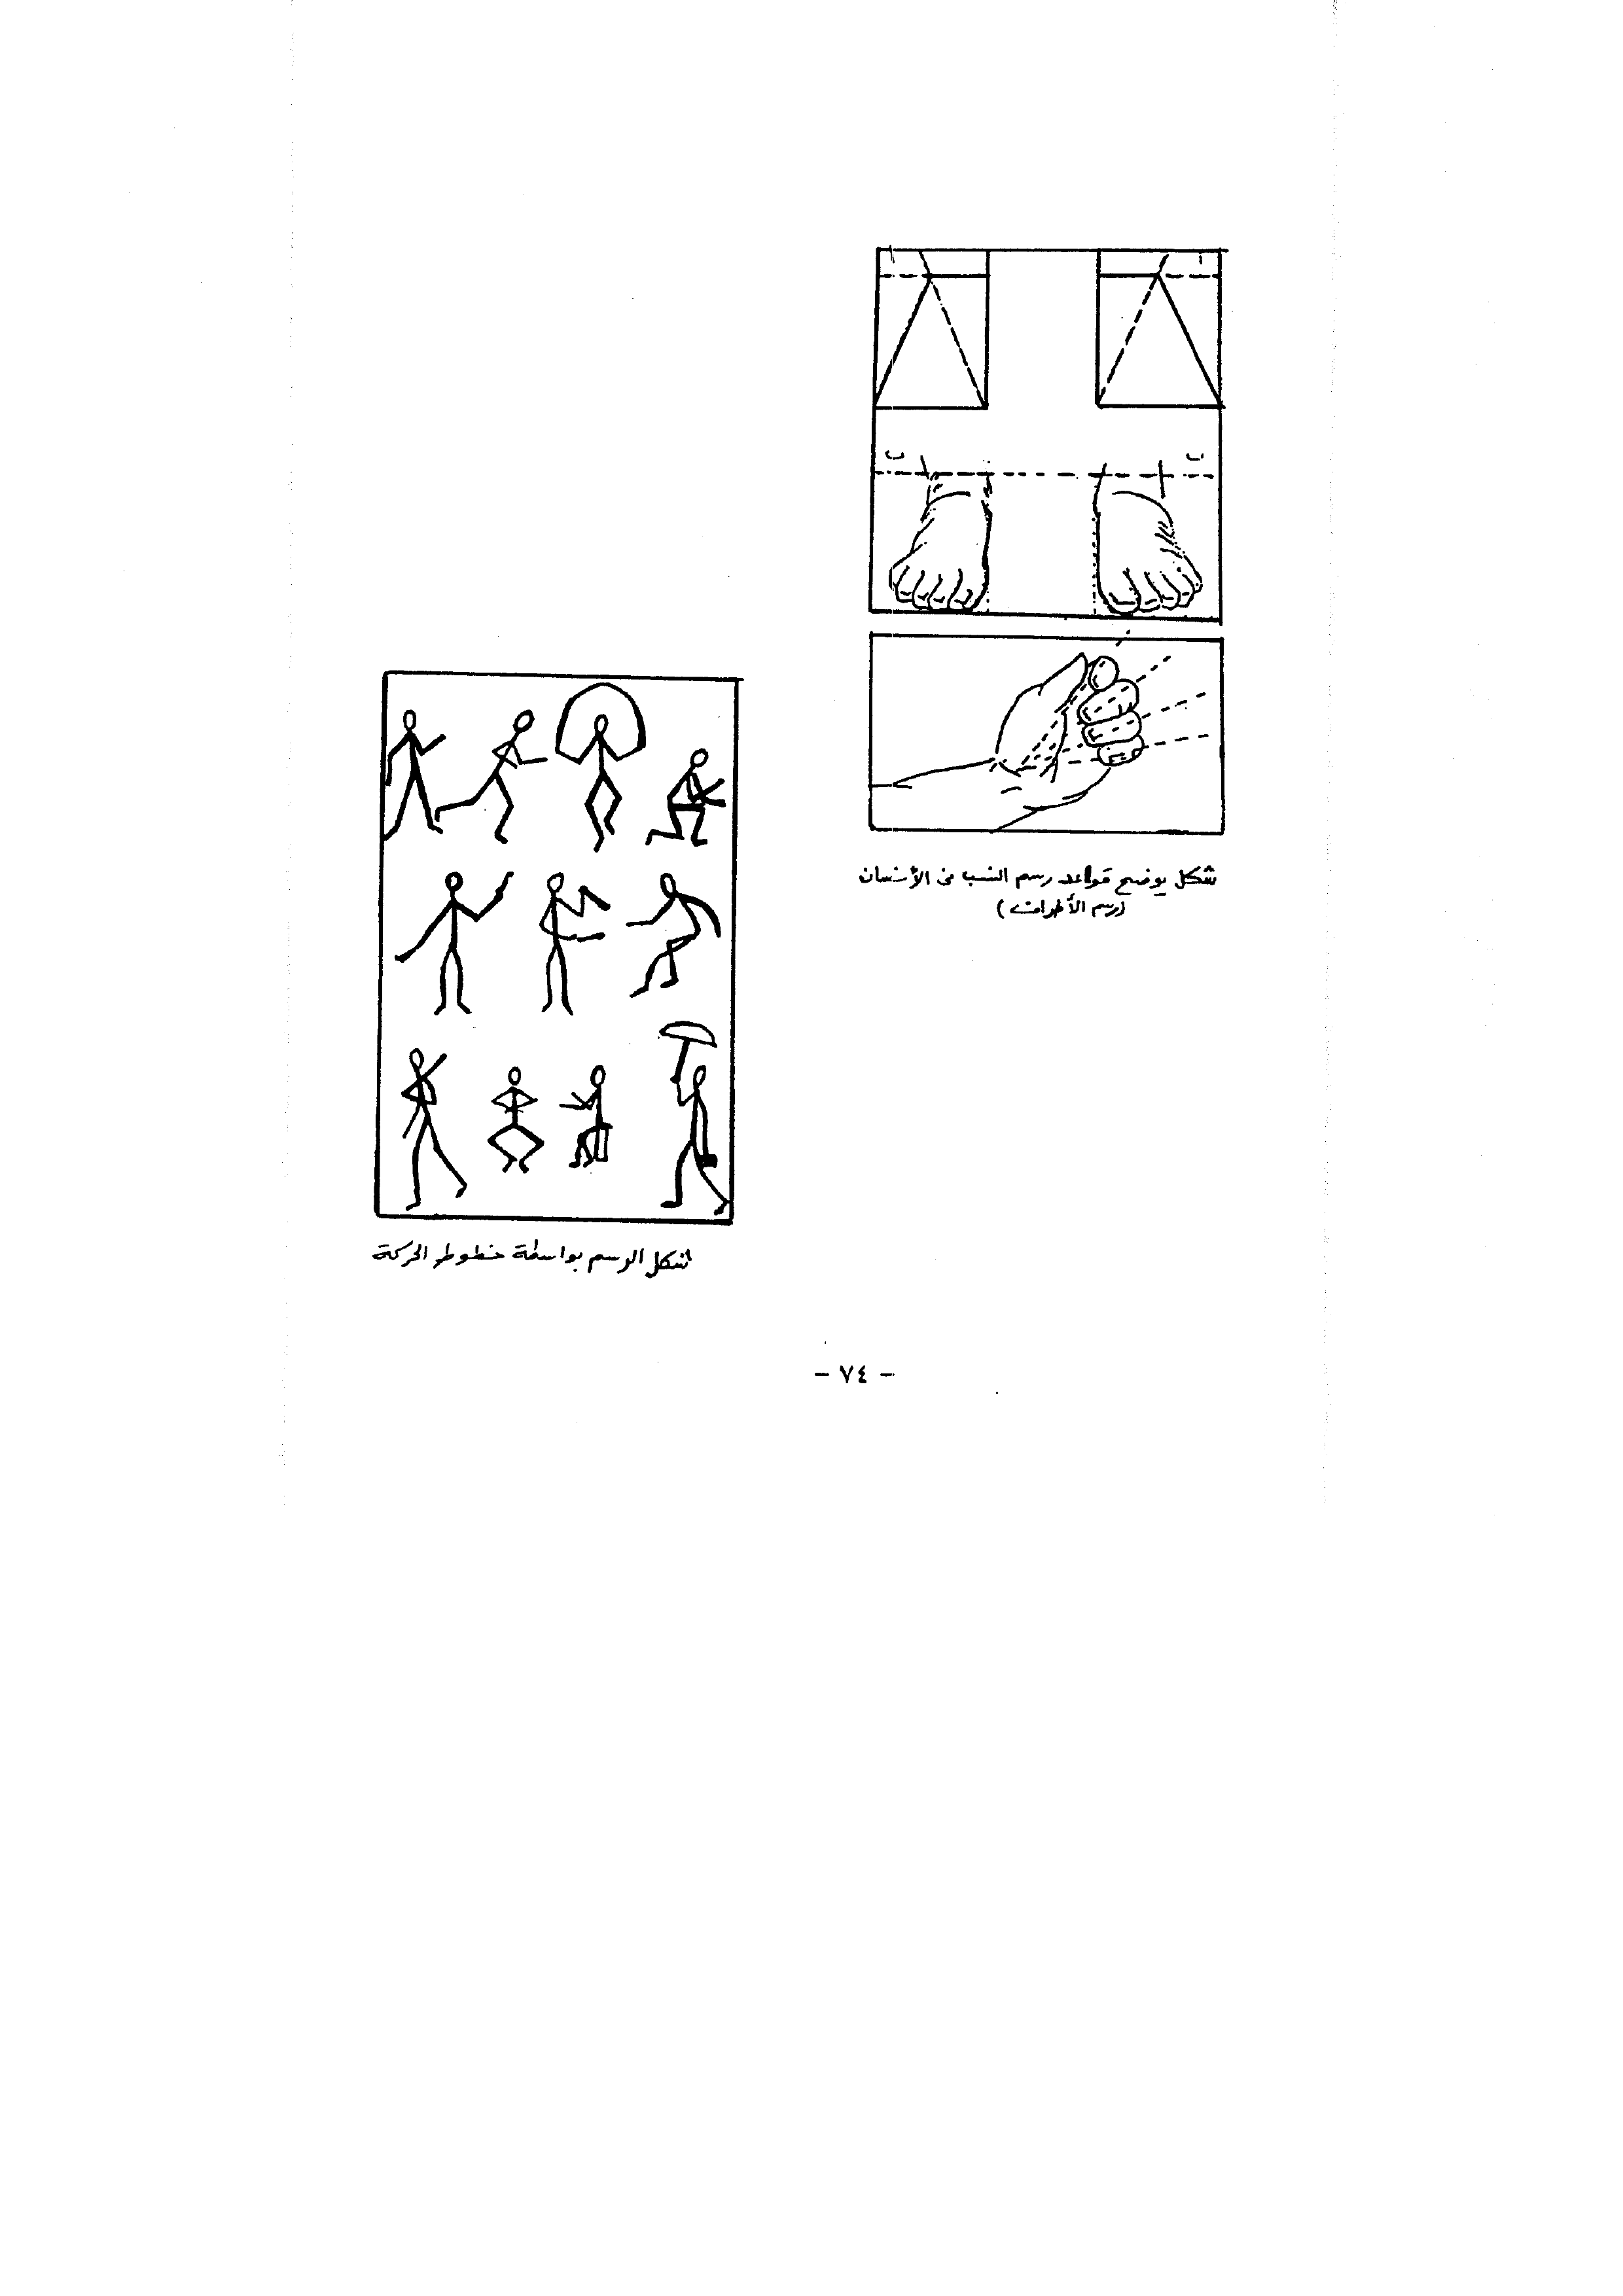 أ
ب ب
شكل يوضح قواعد رسم النسب في الأنسان
(رسم الأطراف)
شكل الرسم بواسطة خطوط الحركة
- ٧٤ -